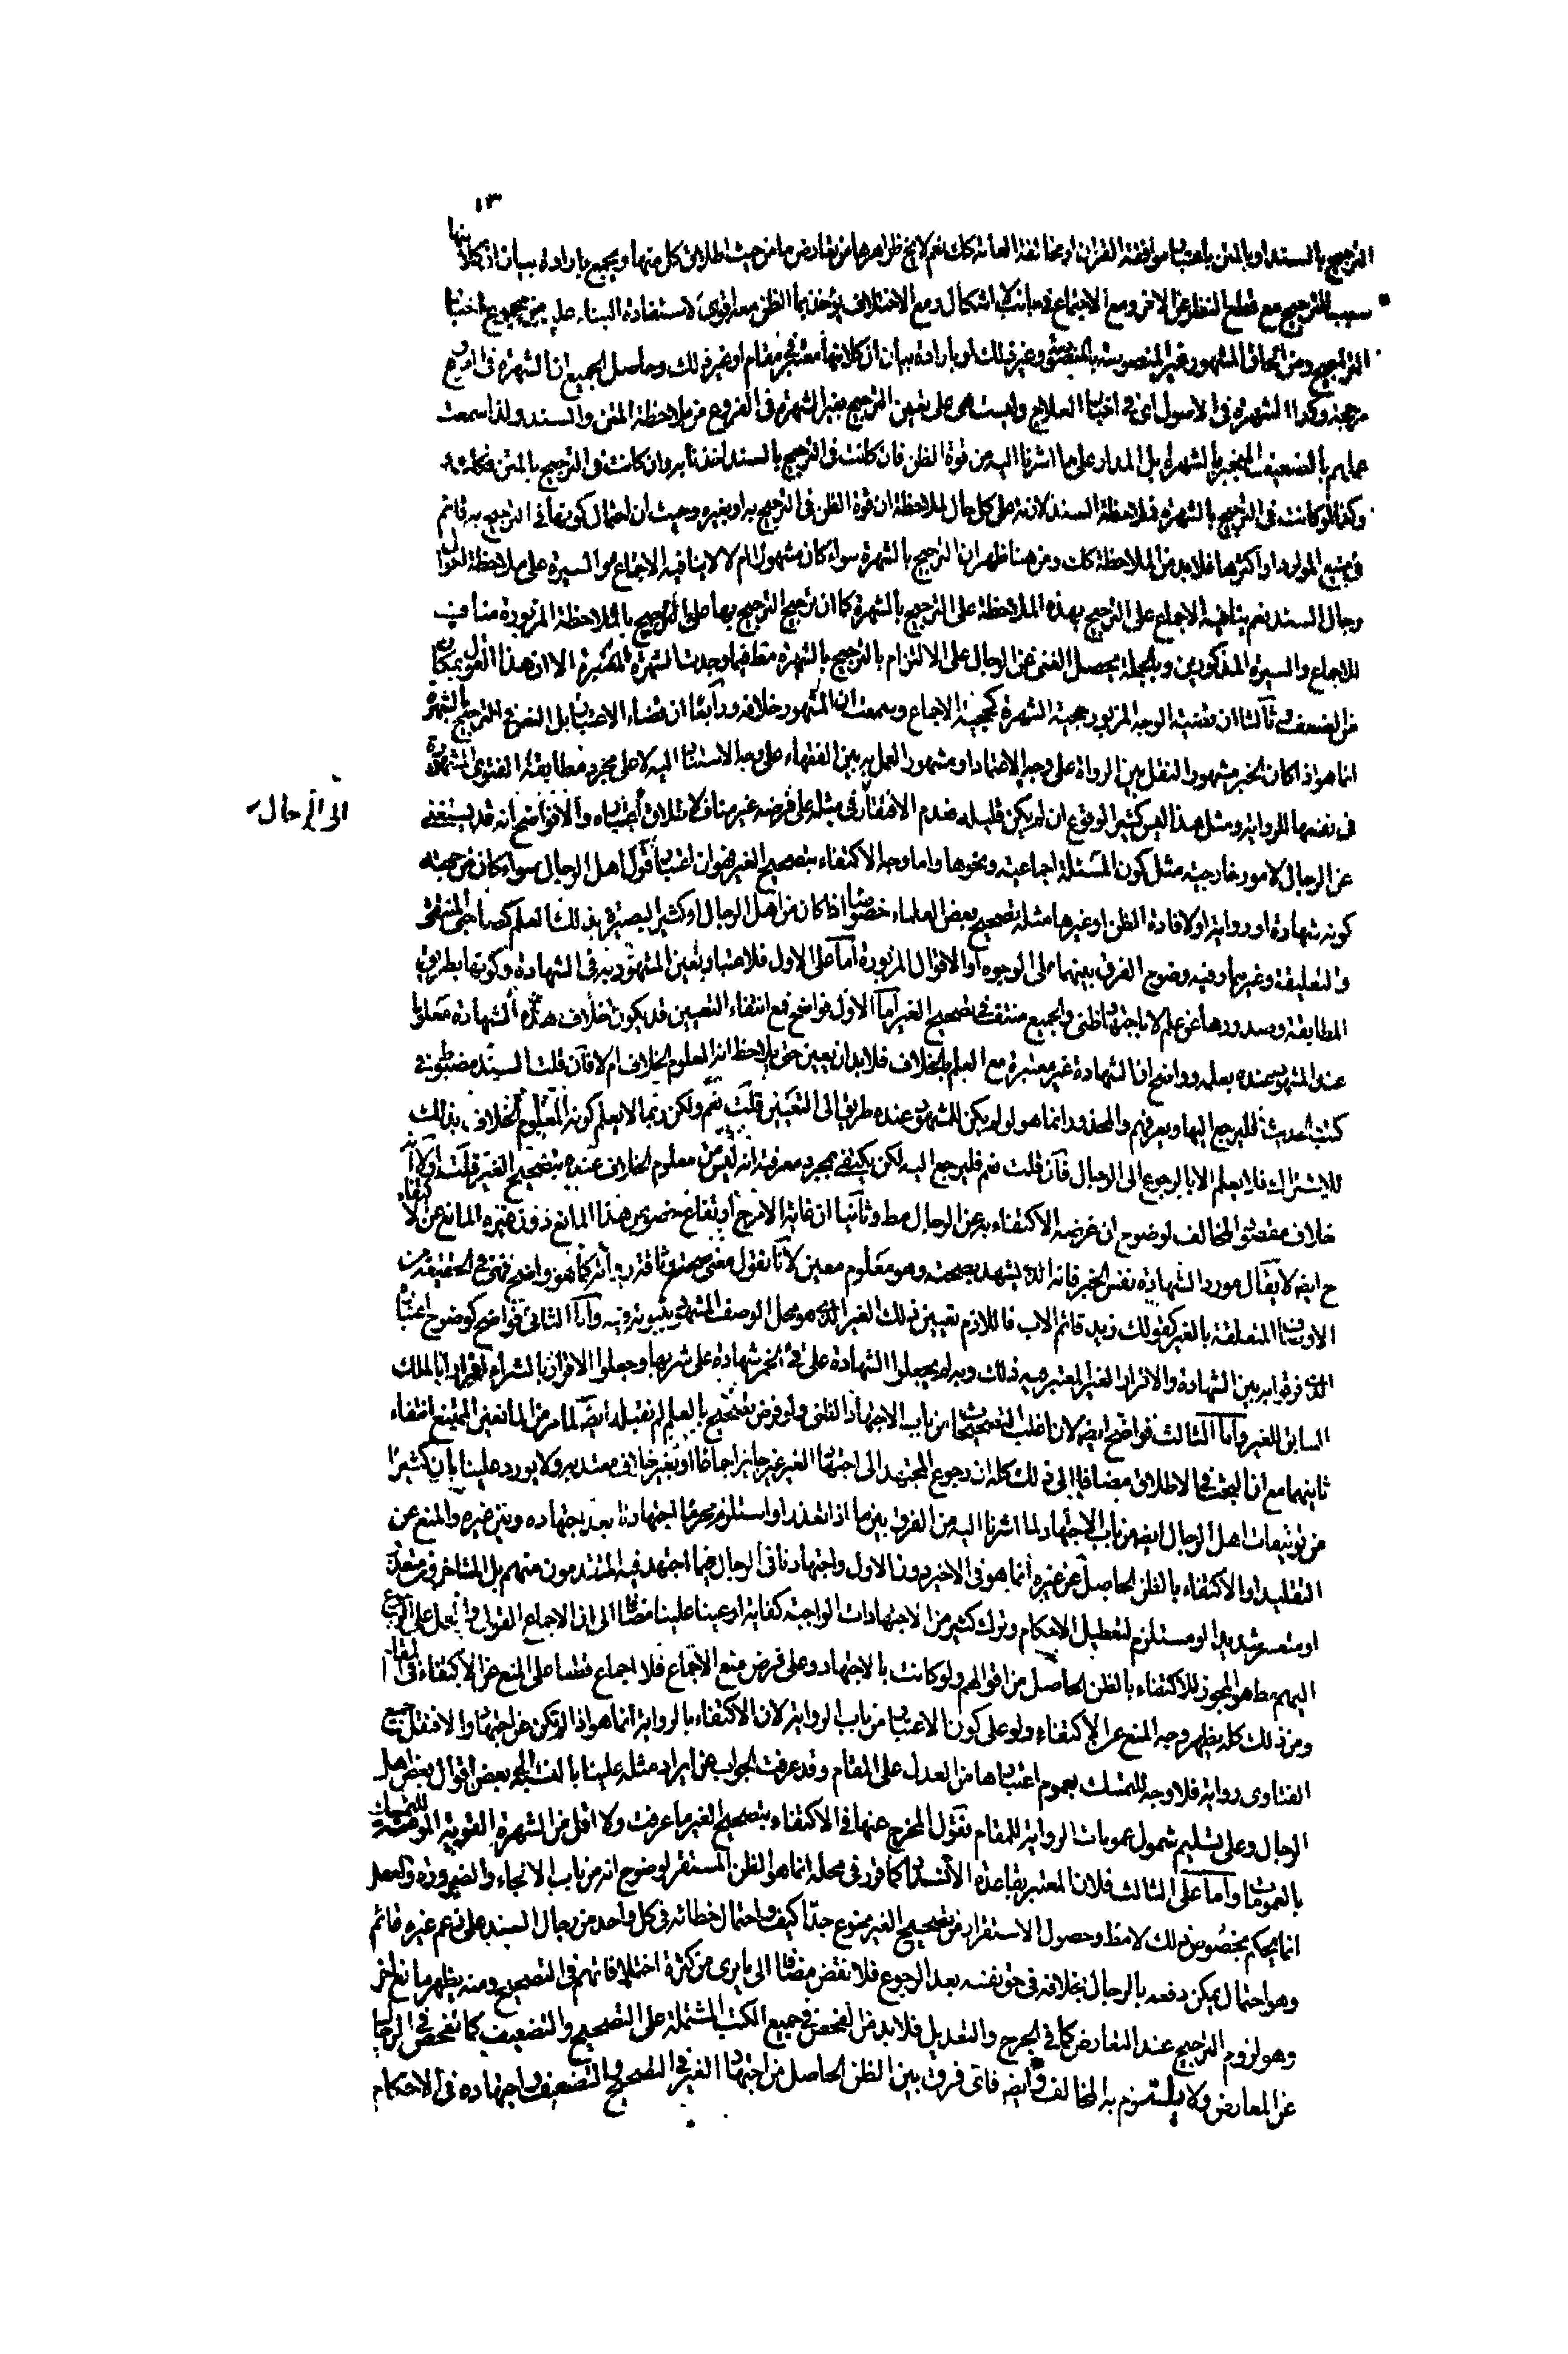 ١٣
الترجيح بالسند او بالمتن باعتبار موافقة القران او مخالفة العامة كك نعم لا يخ ظواهرها من تعارض ما من حيث اطلاق كل منها ويجمع بارادة بيان ان كلا منها
سبب للترجيح مع قطع النظر عن الاخر ومع الاجتماع فى جانب لا اشكال ومع الاختلاف يؤخذ بما الظن معه اقوى لاستفادة البناء عليه من مجموع اخبار
التراجيح ومن الحاق المشهور غير المنصوصة بالمنصوصة وغير ذلك او بارادة بيان ان كلا منها معتبر فى مقام او غير ذلك وحاصل الجميع ان الشهرة فى الفروع
مرجحة وكذا الشهرة فى الاصول اى فى اخبار العلاج وليست هى على تعين الترجيح بغير الشهرة فى الفروع من ملاحظة المتن والسند ولذا سمعت
عملهم بالضعيف المنجبر بالشهرة بل المدار على ما اشرنا اليه من قوة الظن فان كانت فى الترجيح بالسند اخذنا به وان كانت فى الترجيح بالمتن فكك
وكذا لو كانت فى الترجيح بالشهرة فملاحظة السند لازمة على كل حال لملاحظة ان قوة الظن فى الترجيح به او بغيره وحيث ان احتمال كونها فى الترجيح به قائم
فى جميع الموارد او اكثرها فلا بد من الملاحظة كك ومن هنا ظهر ان الترجيح بالشهرة سواء كان مشهورا ام لا لا ينافيه الاجماع والسيرة على ملاحظة احوال
رجال السند نعم ينافيه الاجماع على الترجيح بهذه الملاحظة على الترجيح بالشهرة كما ان ترجيح الترجيح بها على الترجيح بالملاحظة المزبورة مناف
للاجماع والسيرة المذكورين وبالجملة يحصل الغنى عن الرجال على الالتزام بالترجيح بالشهرة مط فيما وجدت الشهرة المعتبرة الا ان هذا القول بمكان
من الضعف وثالثا ان مقتضى الوجه المزبور حجية الشهرة كحجية الاجماع وسمعت ان المشهور خلافه ورابعا ان قضاء الاعتبار بل النص فى الترجيح بالشهرة
انما هو اذا كان الخبر مشهور النقل بين الرواة على وجه الاعتماد او مشهور العمل به بين الفقهاء على وجه الاستناد اليه لا على مجرد مطابقة الفتوى المشهورة
فى نفسها للرواية ومثل هذا ليس كثير الوقوع ان لم يكن قليله فعدم الافتقار فى مثله على فرضه غير مناف لاطلاق احتياج والا فواضح انه قد يستغنى
الى الرجال
عن الرجال لامور خارجية مثل كون المسئلة اجماعية ونحوها واما وجه الاكتفاء بتصحيح الغير فهو ان اعتبار قول اهل الرجال سواء كان من جهة
كونه شهادة او رواية او لافادة الظن او غيرها مثله تصحيح بعض العلماء خصوصا اذا كان من اهل الرجال او كثير البصيرة بذلك العلم كصاحبى المنتقى
والتعليقة وغيرهما وفيه وضوح الفرق بينهما على الوجوه او الاقوال المزبورة اما على الاول فلاعتبار تعين المشهود به فى الشهادة وكونها بطريق
المطابقة وصدورها عن علم لا باجتهاد ظنى والجميع منتف فى تصحيح الغير اما الاول فواضح فمع انتفاء التعيين قد يكون خلاف هذه الشهادة معلوما
عند المشهود عنده بعلمه وواضح ان الشهادة غير معتبرة مع العلم بالخلاف فلا بد ان يعين حتى يلاحظ انه المعلوم الخلاف ام لا فان قلت السند مضبوط فى
كتب الحديث فليرجع اليها ويعرفهم والمحذور انما هو لو لم يكن للمشهود عنده طريق الى التعيين قلت نعم ولكن ربما لا يعلم كونه المعلوم الخلاف بذلك
للاشتراك فلا يعلم الا بالرجوع الى الرجال فان قلت نعم فليرجع اليه لكن يكتفى بمجرد معرفة انه ليس من معلوم الخلاف عنده بتصحيح الغير قلت اولا انه
خلاف مقصود المخالف لوضوح ان غرضه الاكتفاء به عن الرجال مط وثانيا ان غاية الامر ح ارتفاع خصوص هذا المانع دون غيره المانع عن الاكتفاء
ح ايضه لا يقال مورد الشهادة نفس الخبر فانه الذى يشهد بصحته وهو معلوم معين لانا نقول معنى صحته وثاقة رواته كما هو واضح فهى فى الحقيقة من
الاوصاف المتعلقة بالغير كقولك زيد قائم الاب فاللازم تعيين ذلك الغير الذى هو محل الوصف المشهود بثبوته فيه واما الثانى فواضح كوضوح اعتباره
الذى فرقوا به بين الشهادة والاقرار الغير المعتبر فيه ذلك وبه لم يجعلوا الشهادة على قئ الخمر شهادة على شربها وجعلوا الاقرار بالشراء اقرارا بالملك
السابق للغير واما الثالث فواضح ايضه لان اغلب التصحيحات من باب الاجتهاد الظنى ولو فرض تصحيح بالعلم لم نقبله ايضا لما مر من المانعين الممتنع انتفاء
ثانيهما مع ان البحث فى الاطلاق مضافا الى ذلك كله ان رجوع المجتهد الى اجتهاد الغير غير جايز اجماعا او بغير خلاف معتد به ولا يورد علينا بان كثيرا
من توثيقات اهل الرجال ايضه من باب الاجتهاد لما اشرنا اليه من الفرق بين ما اذا تعذر او استلزم محرما اجتهادنا بعد اجتهاده وبين غيره والمنع عن
التقليد او الاكتفاء بالظن الحاصل عن غيره انما هو فى الاخير دون الاول واجتهادنا فى الرجال فيما اجتهد فيه المتقدمون منهم بل المتاخرون متعذر
او متعسر شديدا او مستلزم لتعطيل الاحكام وترك كثير من الاجتهادات الواجبة كفاية او عينا علينا مضافا الى ان الاجماع القولى والعمل على الرجوع
اليهم مط هو المجوز للاكتفاء بالظن الحاصل من اقوالهم ولو كانت بالاجتهاد وعلى فرض منع الاجماع فلا اجماع قطعا على المنع عن الاكتفاء فى المقام
ومن ذلك كله يظهر وجه المنع عن الاكتفاء ولو على كون الاعتبار من باب الرواية لان الاكتفاء بالرواية انما هو اذا لم تكن عن اجتهاد والا فنقل جميع
الفتاوى رواية فلا وجه للتمسك بعموم اعتبارها من العدل على المقام وقد عرفت الجواب عن ايراد مثله علينا بالنسبة الى بعض اقوال بعض اهل
الرجال وعلى تسليم شمول عمومات الرواية للمقام نقول المخرج عنها فى الاكتفاء بتصحيح الغير ما عرفت ولا اقل من الشهرة القوية الموهنة للتمسك
بالعمومات واما على الثالث فلان المعتبر بقاعدة الانسداد كما قرر فى محله انما هو الظن المستقر لوضوح انه من باب الالجاء والضرورة والعقل
انما يحكم بخصوص ذلك لا مط وحصول الاستقرار من تصحيح الغير ممنوع جدا كيف واحتمال خطائه فى كل واحد من رجال السند على زعم غيره قائم
وهو احتمال يمكن دفعه بالرجال بخلافه فى حق نفسه بعد الرجوع فلا نقض مضافا الى ما يرى من كثرة اختلافاتهم فى التصحيح ومنه يظهر مانع اخر
وهو لزوم الترجيح عند التعارض كما فى الجرح والتعديل فلا بد من الفحص فى جميع الكتب المشتملة على التصحيح والتضعيف كما نفحص فى الرجال
عن المعارض ولا يلتزم به المخالف وايضه فاى فرق بين الظن الحاصل من اجتهاد الغير فى التصحيح والتضعيف واجتهاده فى الاحكام